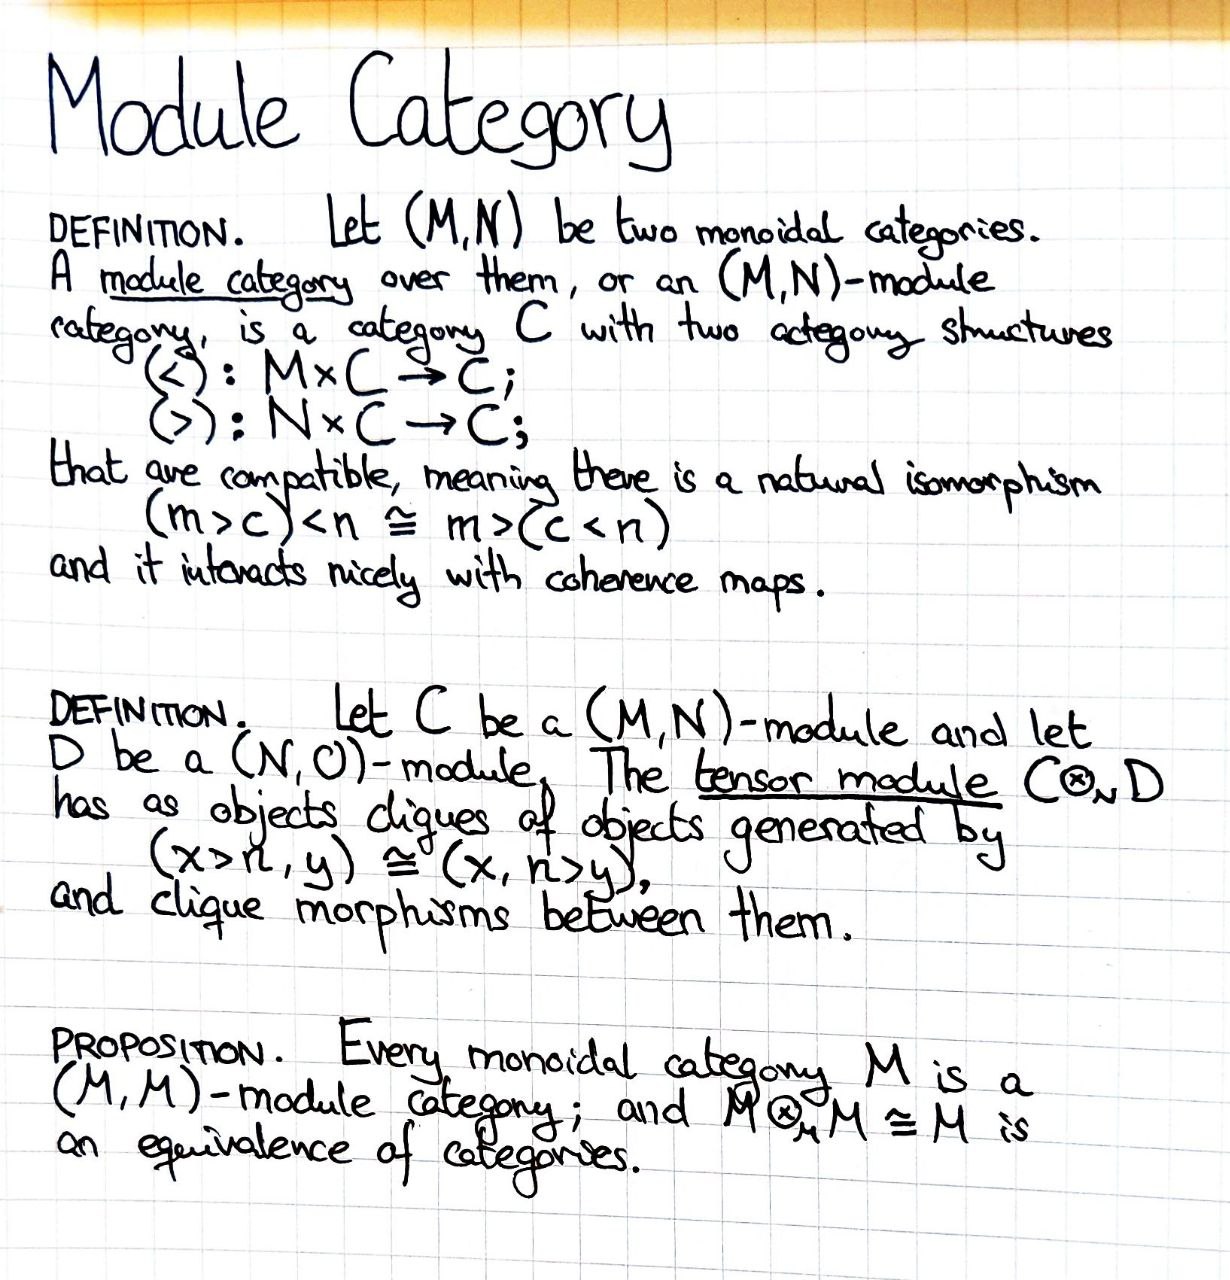 Module Category
DEFINITION. Let (M,N) be two monoidal categories.
A module category over them, or an (M,N)-module
category, is a category C with two actegory structures
(<) : M×C → C;
(>) : N×C → C;
that are compatible, meaning there is a natural isomorphism
(m>c)<n ≅ m>(c<n)
and it interacts nicely with coherence maps.
DEFINITION. Let C be a (M,N)-module and let
D be a (N,O)-module. The tensor module C⊗ₙD
has as objects cliques of objects generated by
(x>n, y) ≅ (x, n>y),
and clique morphisms between them.
PROPOSITION. Every monoidal category M is a
(M,M)-module category; and M⊗ₘM ≅ M is
an equivalence of categories.